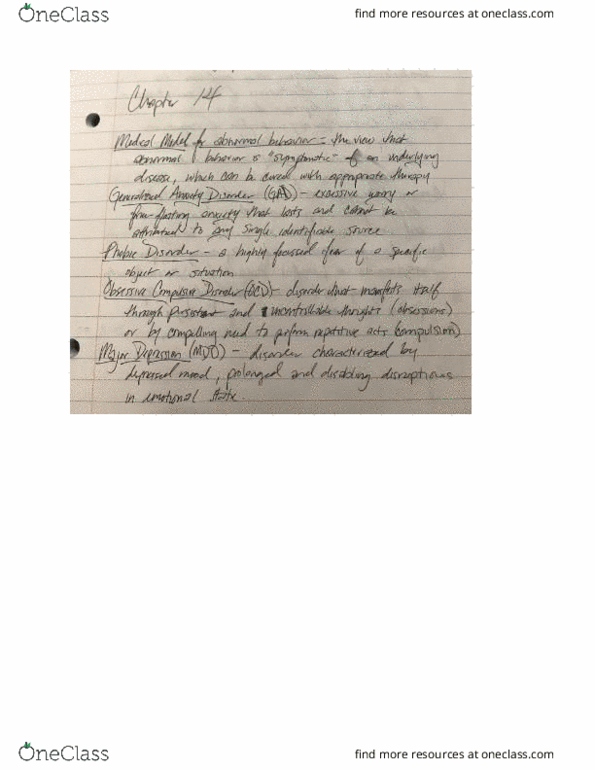 OneClass
find more resources at oneclass.com
Chapter 14
Medical Model for abnormal behavior = the view that
abnormal behavior is "symptomatic" of an underlying
disease, which can be cured with appropriate therapy
Generalized Anxiety Disorder (GAD) - excessive worry or
free-floating anxiety that lasts and cannot be
attributed to any single identifiable source
Phobic Disorder - a highly focussed fear of a specific
object or situation
Obsessive Compulsive Disorder (OCD) - disorder that manifests itself
through persistent and uncontrollable thoughts (obsessions)
or by compelling need to perform repetitive acts (compulsion)
Major Depression (MDD) - disorder characterized by
depressed mood, prolonged and disabling disruptions
in emotional state.
OneClass
find more resources at oneclass.com